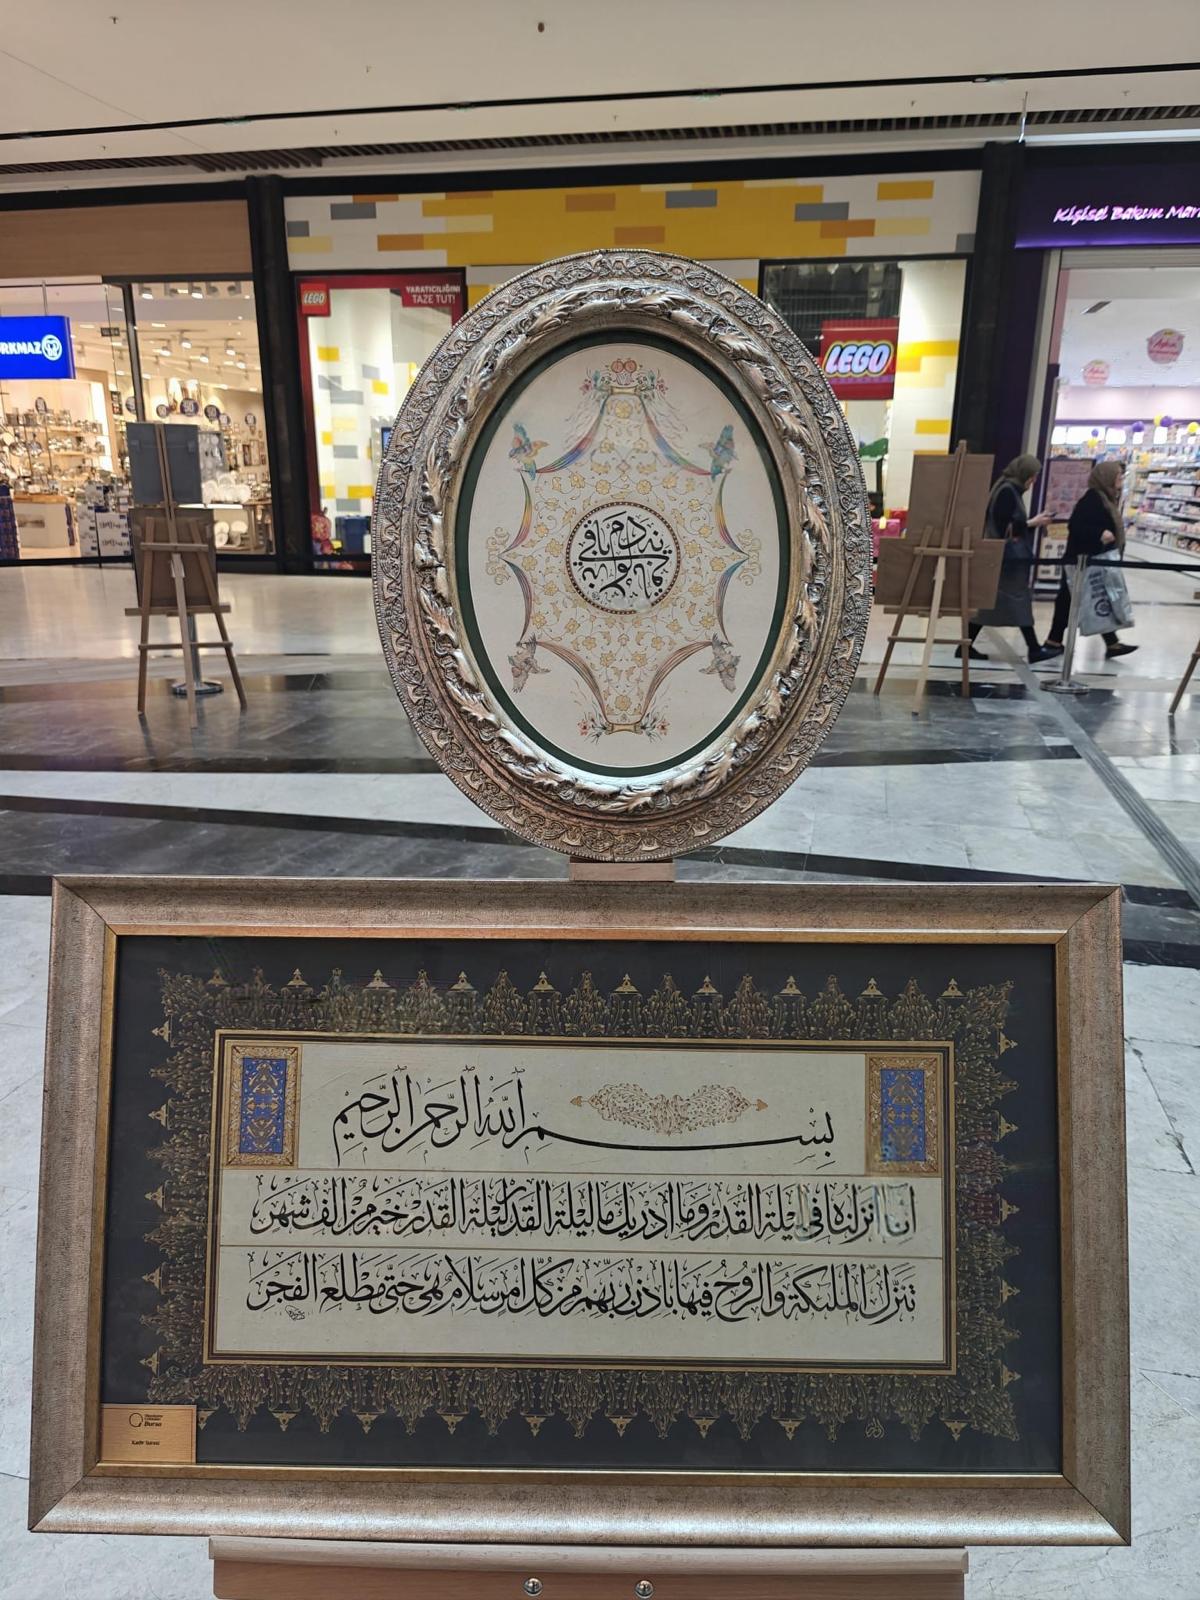 Kişisel Bakım Mar
LEGO
YARATICILIĞINI
TAZE TUT!
RKMAZ
LEGO
بِسْمِ اللّٰهِ الرَّحْمٰنِ الرَّحِيمِ
اِنَّا اَنْزَلْنَاهُ فِى لَيْلَةِ الْقَدْرِ وَمَا اَدْرٰيكَ مَا لَيْلَةُ الْقَدْرِ لَيْلَةُ الْقَدْرِ خَيْرٌ مِنْ اَلْفِ شَهْرٍ
تَنَزَّلُ الْمَلٰئِكَةُ وَالرُّوحُ فِيهَا بِاِذْنِ رَبِّهِمْ مِنْ كُلِّ اَمْرٍ سَلَامٌ هِىَ حَتّٰى مَطْلَعِ الْفَجْرِ
Bursa
Kadir Suresi